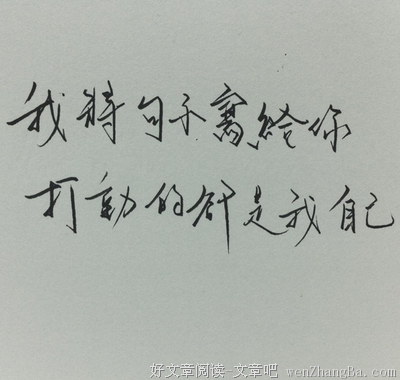 我将句子寫給你
打動的卻是我自己
好文章阅读-文章吧 wenZhangBa.com